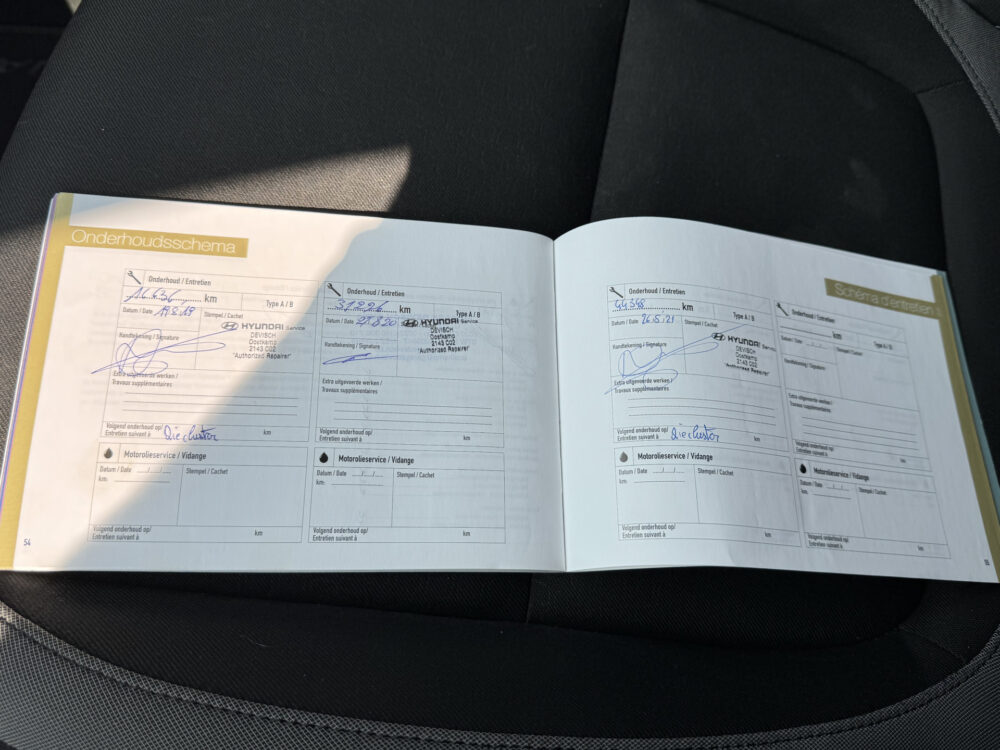 Onderhoudsschema
Onderhoud / Entretien
16.636 km Type A / B
Datum / Date 19.8.19 Stempel / Cachet
HYUNDAI Service
DEVISCH
Oostkamp
2143 C02
"Authorized Repairer"
Handtekening / Signature
Extra uitgevoerde werken /
Travaux supplémentaires
Volgend onderhoud op/
Entretien suivant à Zie cluster km
Motorolieservice / Vidange
Datum / Date __/__/__ Stempel / Cachet
km:
Volgend onderhoud op/
Entretien suivant à km
Onderhoud / Entretien
km Type A / B
Datum / Date Stempel / Cachet
HYUNDAI Service
DEVISCH
Oostkamp
2143 C02
"Authorized Repairer"
Handtekening / Signature
Extra uitgevoerde werken /
Travaux supplémentaires
Volgend onderhoud op/
Entretien suivant à km
Motorolieservice / Vidange
Datum / Date __/__/__ Stempel / Cachet
km:
Volgend onderhoud op/
Entretien suivant à km
54
Schéma d'entretien
Onderhoud / Entretien
44348 km Type A / B
Datum / Date 26.5.21 Stempel / Cachet
HYUNDAI Service
DEVISCH
Oostkamp
2143 C02
"Authorized Repairer"
Handtekening / Signature
Extra uitgevoerde werken /
Travaux supplémentaires
Volgend onderhoud op/
Entretien suivant à Zie cluster km
Motorolieservice / Vidange
Datum / Date __/__/__ Stempel / Cachet
km:
Volgend onderhoud op/
Entretien suivant à km
Onderhoud / Entretien
km Type A / B
Datum / Date __/__/__ Stempel / Cachet
Handtekening / Signature
Extra uitgevoerde werken /
Travaux supplémentaires
Volgend onderhoud op/
Entretien suivant à km
Motorolieservice / Vidange
Datum / Date __/__/__ Stempel / Cachet
km:
Volgend onderhoud op/
Entretien suivant à km
55